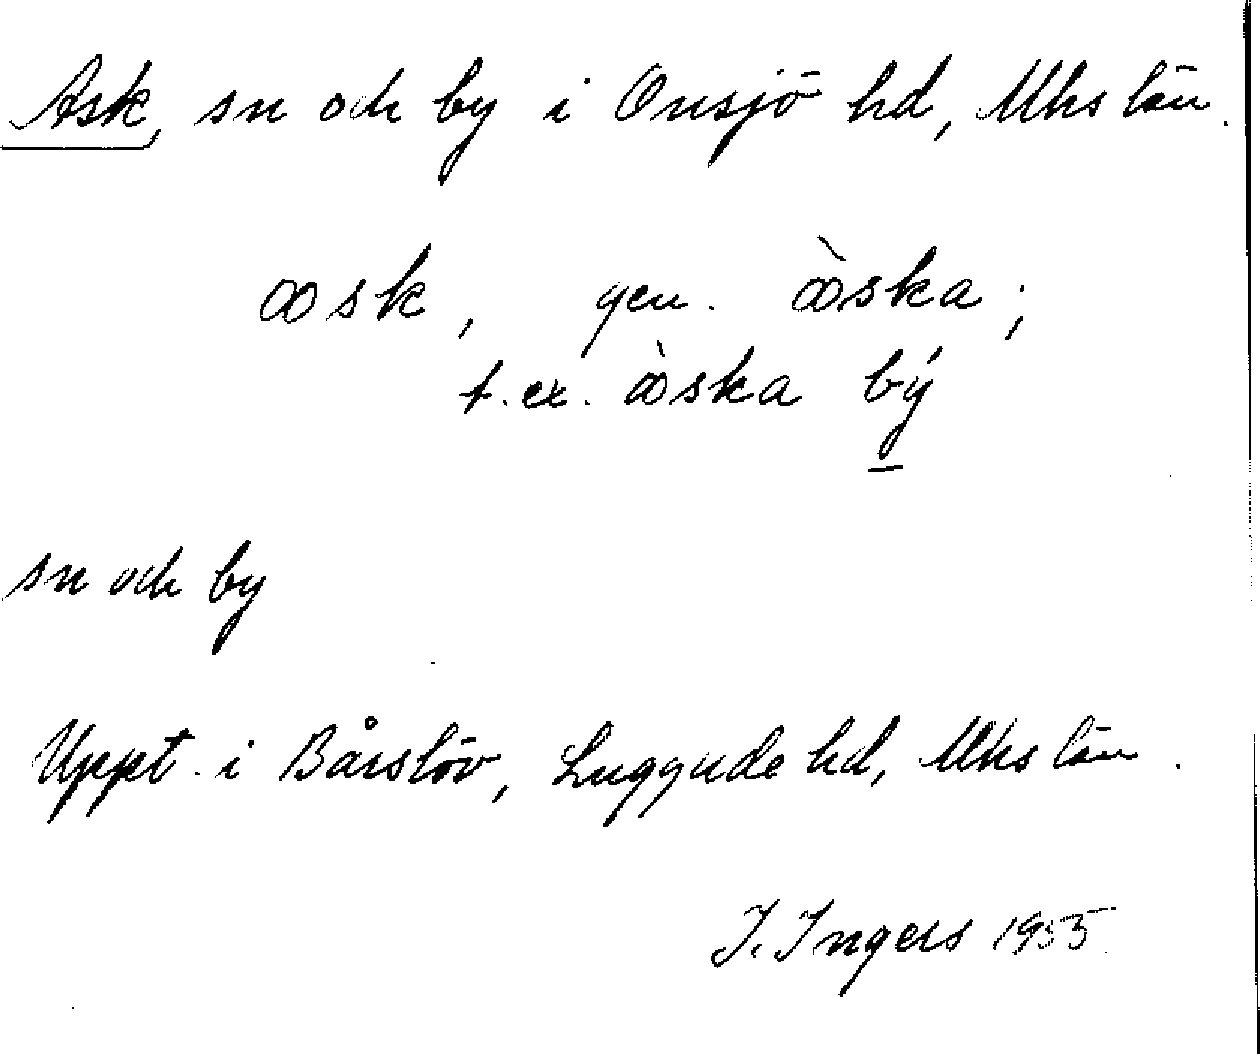 Ask, sn och by i Onsjö hd, Mhs län.
ꝏsk, gen. ꝏ̀ska;
t. ex. ꝏ̀ska bý
sn och by
Uppt. i Bårslöv, Luggude hd, Mhs län.
I. Ingers 1955